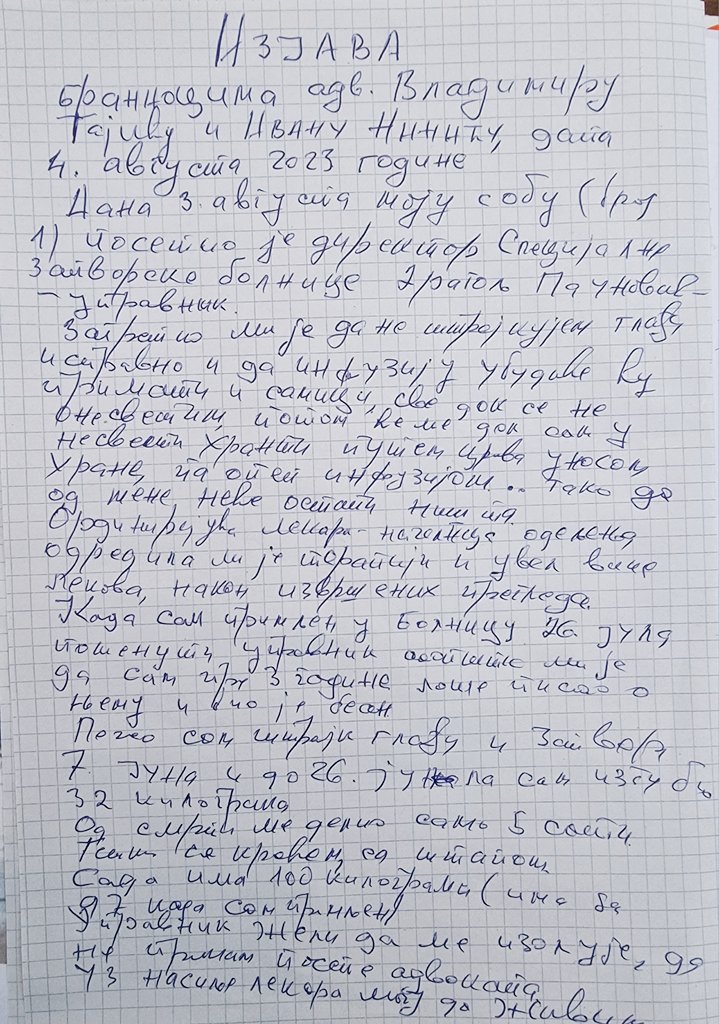 ИЗЈАВА
браниоцима адв. Владимиру
Гајићу и Ивану Нинићу, дата
4. августа 2023 године
Дана 3. августа моју собу (број
1) посетио је директор Специјалне
Затворске болнице Пауновић –
– управник.
Запретио ми је да не штрајкујем глађу
исправно и да инфузију убудуће ћу
примати и саницу, све док се не
онесвестим, потом ће ме док сам у
несвести хранити путем црева уносом
хране, па опет инфузијом... тако да
од мене неће остати ништа.
Ординирајућа лекарка - начелница одељења
одредила ми је терапију и увела више
лекова, након извршених прегледа.
Када сам примљен у болницу 26. јула
поменути управник саопштио ми је
да сам пре 3 године лоше писао о
њему и био је бесан
Почео сам штрајк глађу у Затвору
7. јуна и до 26. јула сам изгубио
32 килограма
Од смрти ме делио само 5 сати.
са креветом, са штапом
Сада имам 100 килограма (имао
97 када сам примљен)
Управник жели да ме изолује, да
не примам посете адвоката
Уз насиље лекара могу да живим